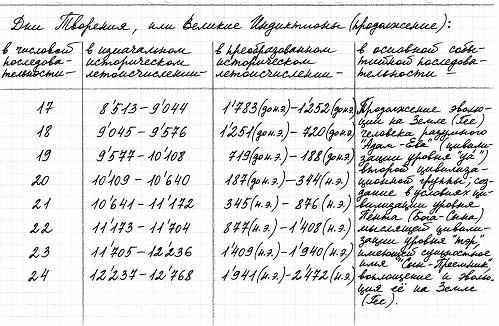 Дни Творения, или Великие Индиктионы (продолжение):
в числовой последова- тельности— в изначальном историческом летоисчислении— в преобразованном историческом летоисчислении— в основной собы- тийной последова- тельности —
17 8'513 – 9'044 1'783 (до н.э.) – 1'252 (до н.э.) Продолжение эволю-
ции на Земле (Гее)
18 9'045 – 9'576 1'251 (до н.э.) – 720 (до н.э.) человека разумного
"Адам-Ева" (цивили-
19 9'577 – 10'108 719 (до н.э.) – 188 (до н.э.) зации уровня "уа")
второй цивилиза-
20 10'109 – 10'640 187 (до н.э.) – 344 (н.э.) ционной группы, соз-
дание в условиях ци-
21 10'641 – 11'172 345 (н.э.) – 876 (н.э.) вилизации уровня
Пента (Бога-Сына)
22 11'173 – 11'704 877 (н.э.) – 1'408 (н.э.) мыслящей цивили-
зации уровня "тэр",
23 11'705 – 12'236 1'409 (н.э.) – 1'940 (н.э.) имеющей сущностное
имя "Сын-Преемник",
24 12'237 – 12'768 1'941 (н.э.) – 2'472 (н.э.) воплощение и эволю-
ция её на Земле
(Гее).